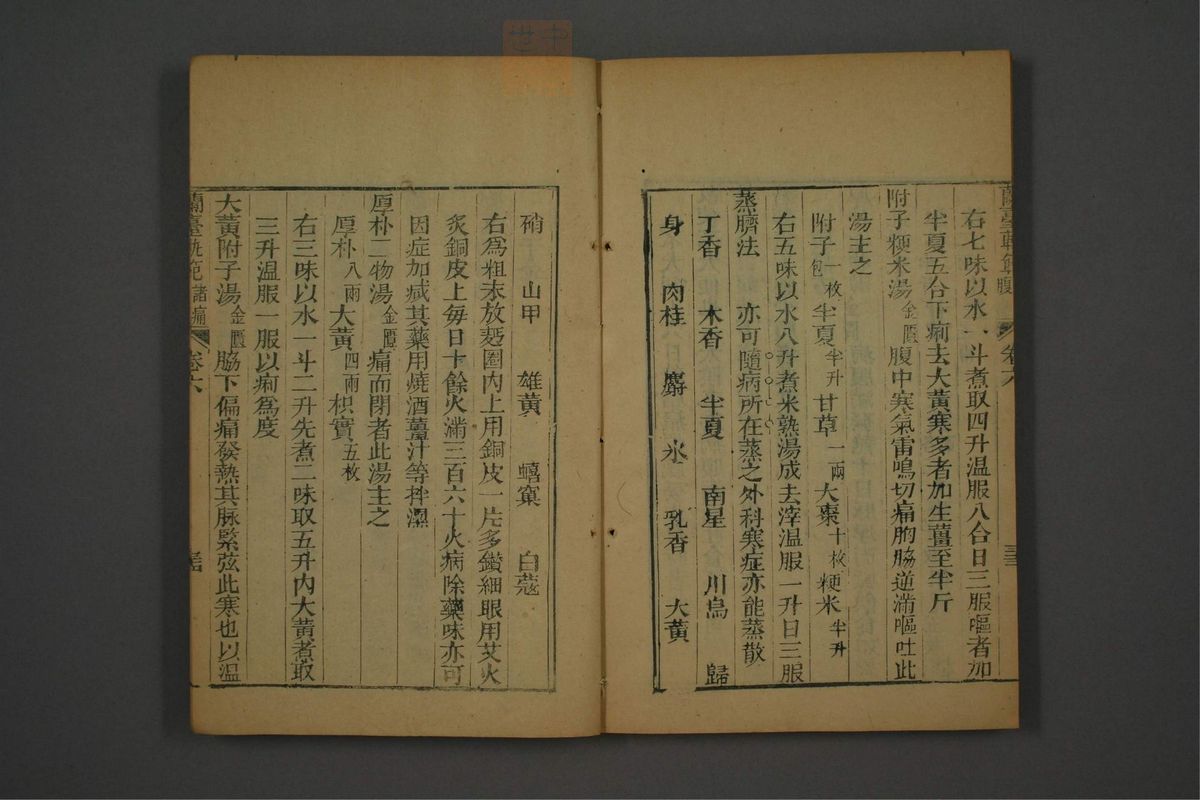 右七味以水一斗煮取四升温服八合日三服嘔者加
半夏五合下痢去大黃寒多者加生薑至半斤
附子粳米湯金匱腹中寒氣雷鳴切痛胸脇逆滿嘔吐此
湯主之
附子一枚包半夏半升甘草一兩大棗十枚粳米半升
右五味以水八升煮米熟湯成去滓温服一升日三服
蒸臍法　亦可隨病所在蒸之外科寒症亦能蒸散
丁香　木香　半夏　南星　川烏　歸
身　肉桂　麝　氷　乳香　大黃
硝　山甲　雄黃　蟢窠　白蔻
右為粗末放麪圈內上用銅皮一片多鑚細眼用艾火
炙銅皮上每日十餘火滿三百六十火病除藥味亦可
因症加減其藥用燒酒薑汁等拌濕
厚朴二物湯金匱痛而閉者此湯主之
厚朴八兩大黃四兩枳實五枚
右三味以水一斗二升先煮二味取五升內大黃煮取
三升温服一服以痢為度
大黃附子湯金匱脇下偏痛發熱其脉緊弦此寒也以温
蘭臺軌範諸痛　卷六